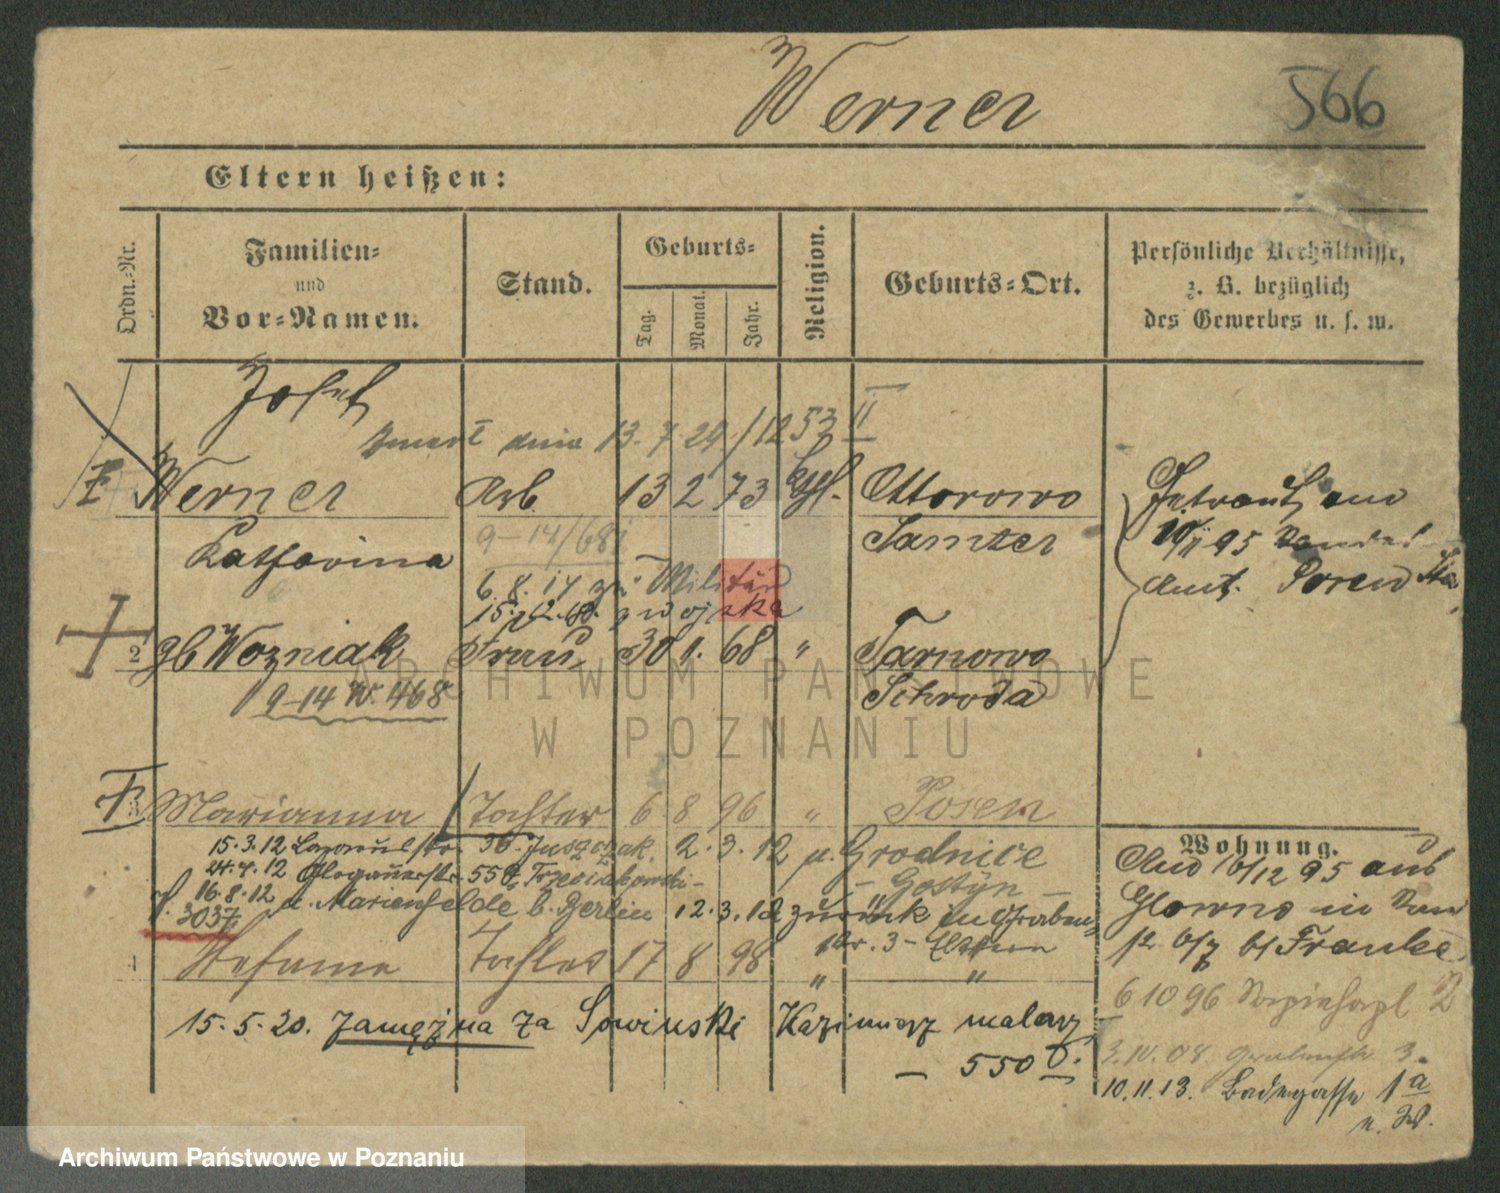 Werner
566
Eltern heißen:
Ordn.-Nr.
Familien-
und
Vor-Namen.
Stand.
Geburts-
Tag.
Monat.
Jahr.
Religion.
Geburts-Ort.
Persönliche Verhältnisse,
z. B. bezüglich
des Gewerbes u. s. w.
Josef
dnia 13. 7 24 / 1253 II
Werner Arb. 13 2 73 Ottorowo
Samter
Getraut am
10/11 95
Amt. Posen
Katharina
9-14/68
6. 8. 14 zu Militär
z wojska
2 gb Wozniak Frau 30 1. 68 " Tarnowo
Schroda
9-14 W. 468
3 Marianna Tochter 6 8 96 " Posen
15.3.12 36. Juszczak. 2. 3. 12 u. Grodnice
24.4.12 Glogauerstr. 55 - Gostyn -
16.8.12 u. Marienfelde b. Berlin 12. 3. 12 zurück in Graben-
3037
Nr. 3 - Eltern
4 Stefanie Tochter 17 8 98 " "
15. 5. 20. zamężna za Sowinski Kazimierz malarz
- 550
Wohnung.
Aus 10/12 95 aus
Glowno in
b/ Franke
6 10 96 2
3. 10. 08. Grabenstr 3.
10. 11. 13. Badegasse 1a
ARCHIWUM PAŃSTWOWE
W POZNANIU
Archiwum Państwowe w Poznaniu